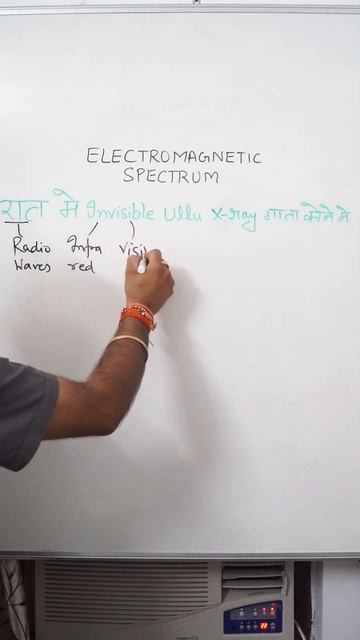 ELECTROMAGNETIC
SPECTRUM
रात मे Invisible Ullu X-ray गाता कोने मे
Radio Infra visi
Waves red